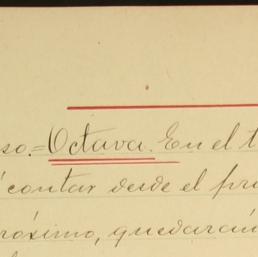 so.=Octava. En el t
contar desde el pri
róximo, quedarán